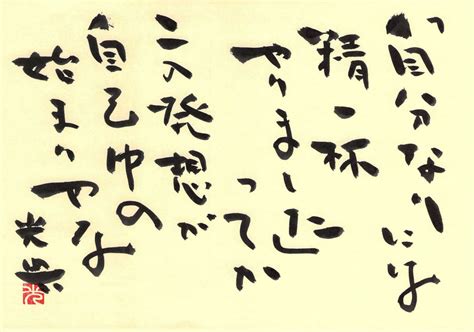 「自分なりには
精一杯
やりました」
ってか
この発想が
自己中の
始まりやな